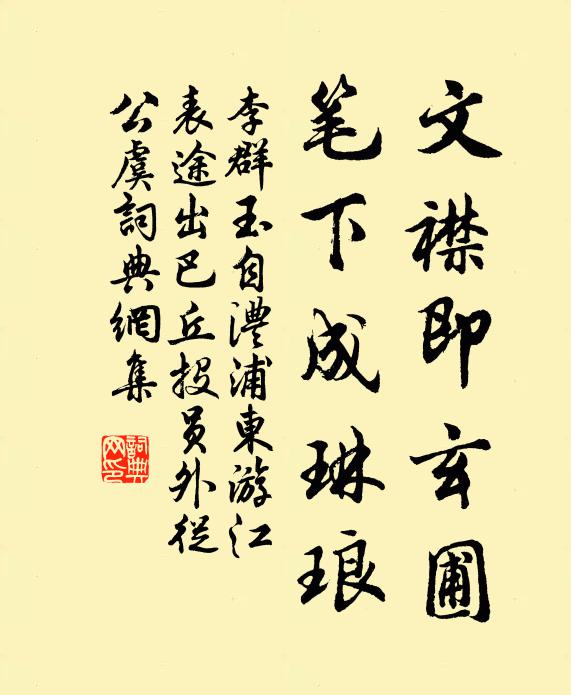 文襟即玄圃
笔下成琳琅
李群玉自澧浦東游江
表途出巴丘投员外従
公虞詞典網集
詞典网印